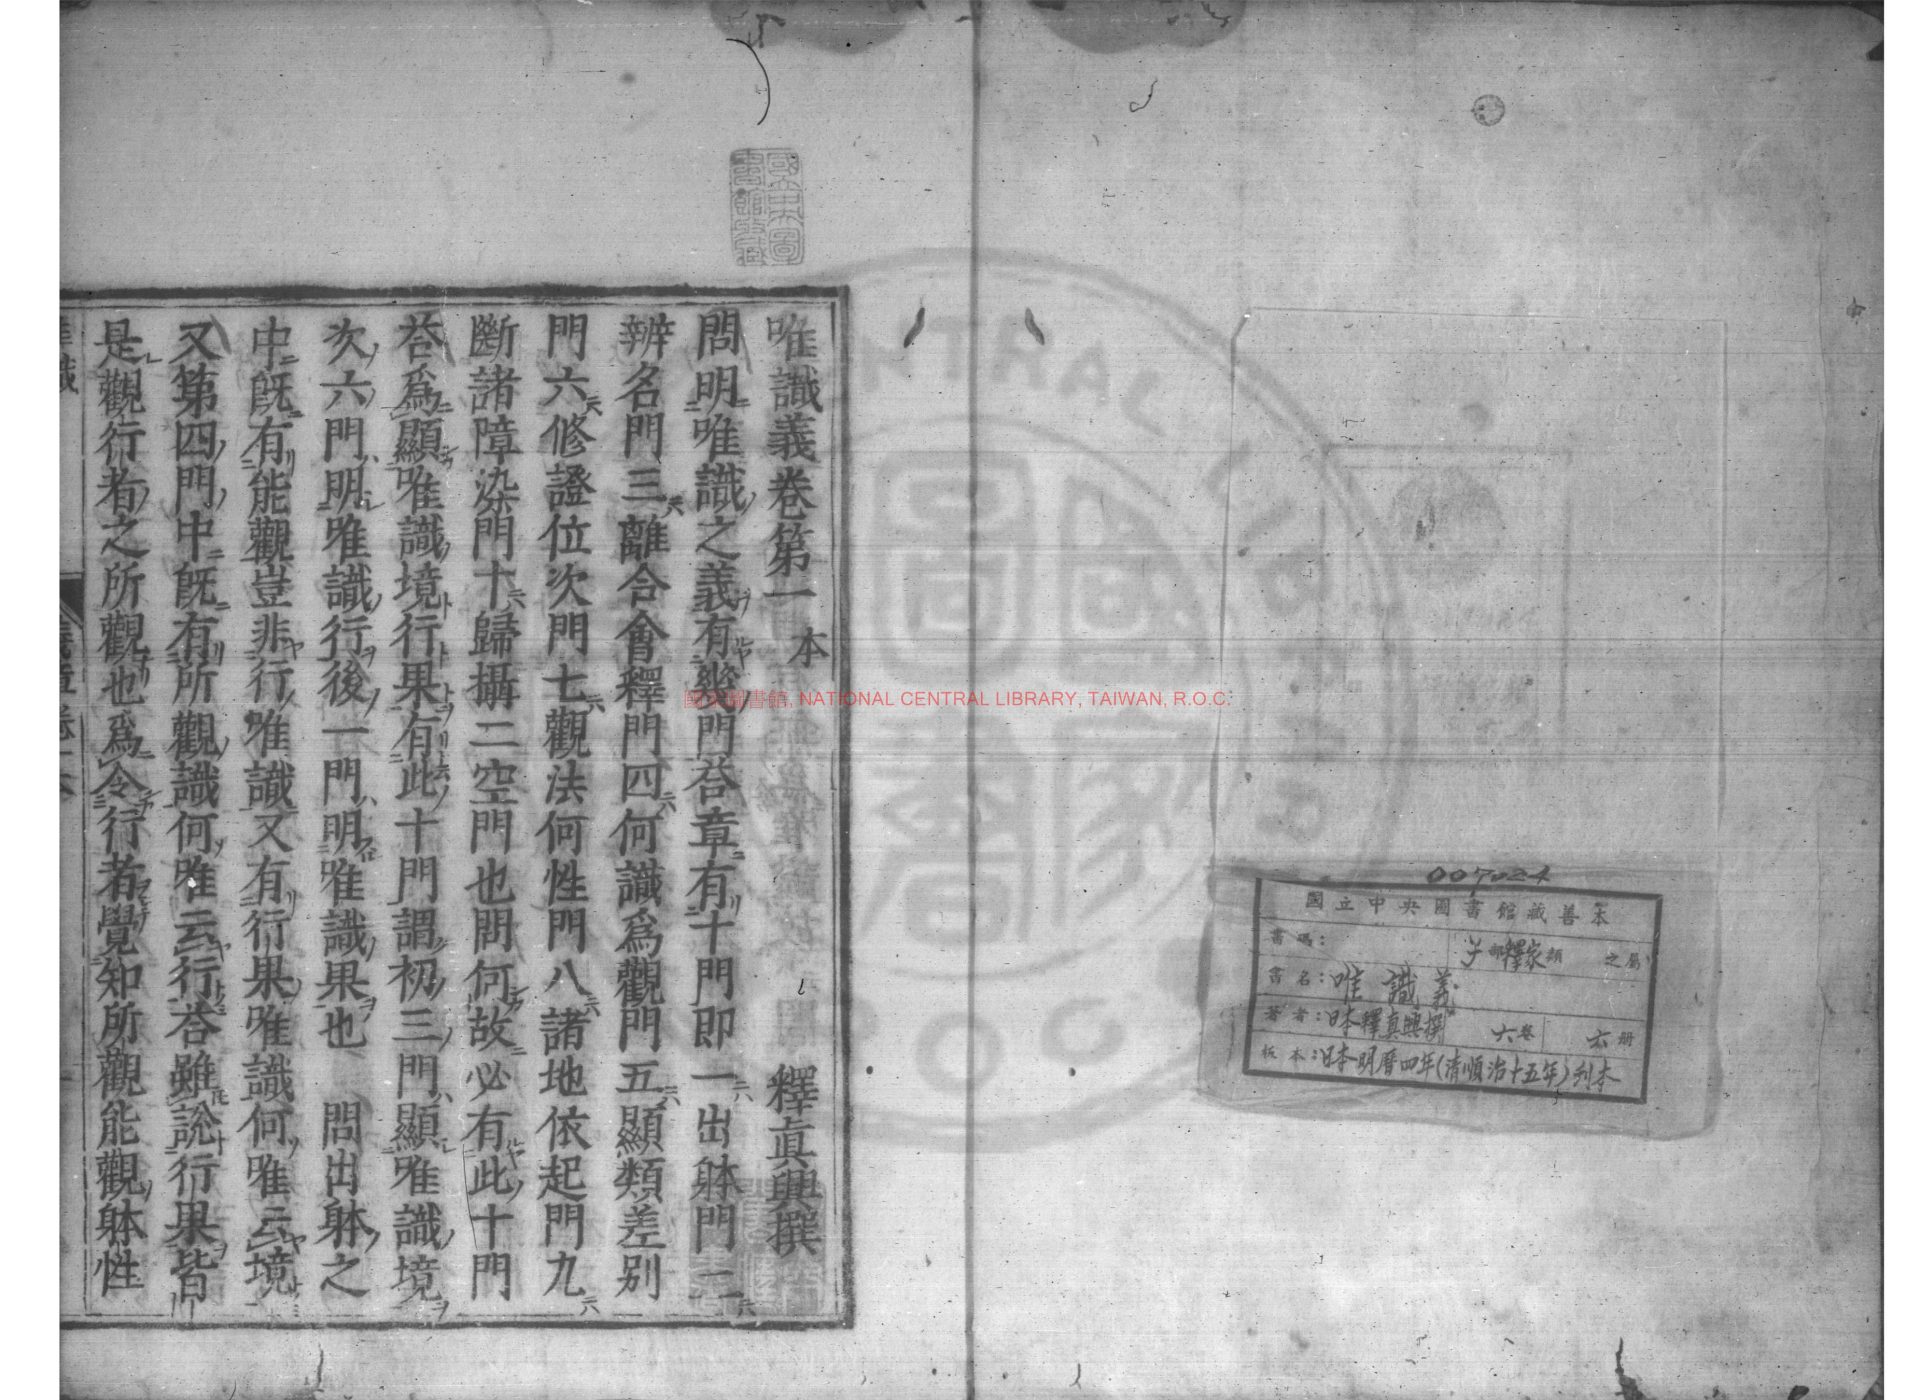 007024
國立中央圖書館藏善本
書碼： 子部釋家類 之屬
書名：唯識義
著者：日本釋真興撰 六卷 六册
板本：日本明曆四年(清順治十五年)刊本
國家圖書館, NATIONAL CENTRAL LIBRARY, TAIWAN, R.O.C.
唯識義卷第一 本 釋眞興撰
問明唯識之義有幾門荅章有十門即一出躰門二
辨名門三離合會釋門四何識爲觀門五顯類差别
門六修證位次門七觀法何性門八諸地依起門九
斷諸障染門十歸攝二空門也問何故必有此十門
荅爲顯唯識境行果有此十門謂初三門顯唯識境
次六門明唯識行後一門明唯識果也 問出躰之
中既有能觀豈非行唯識又有行果唯識何唯云境
又第四門中既有所觀識何唯云行荅雖說行果皆
是觀行者之所觀也爲令行者覺知所觀能觀躰性